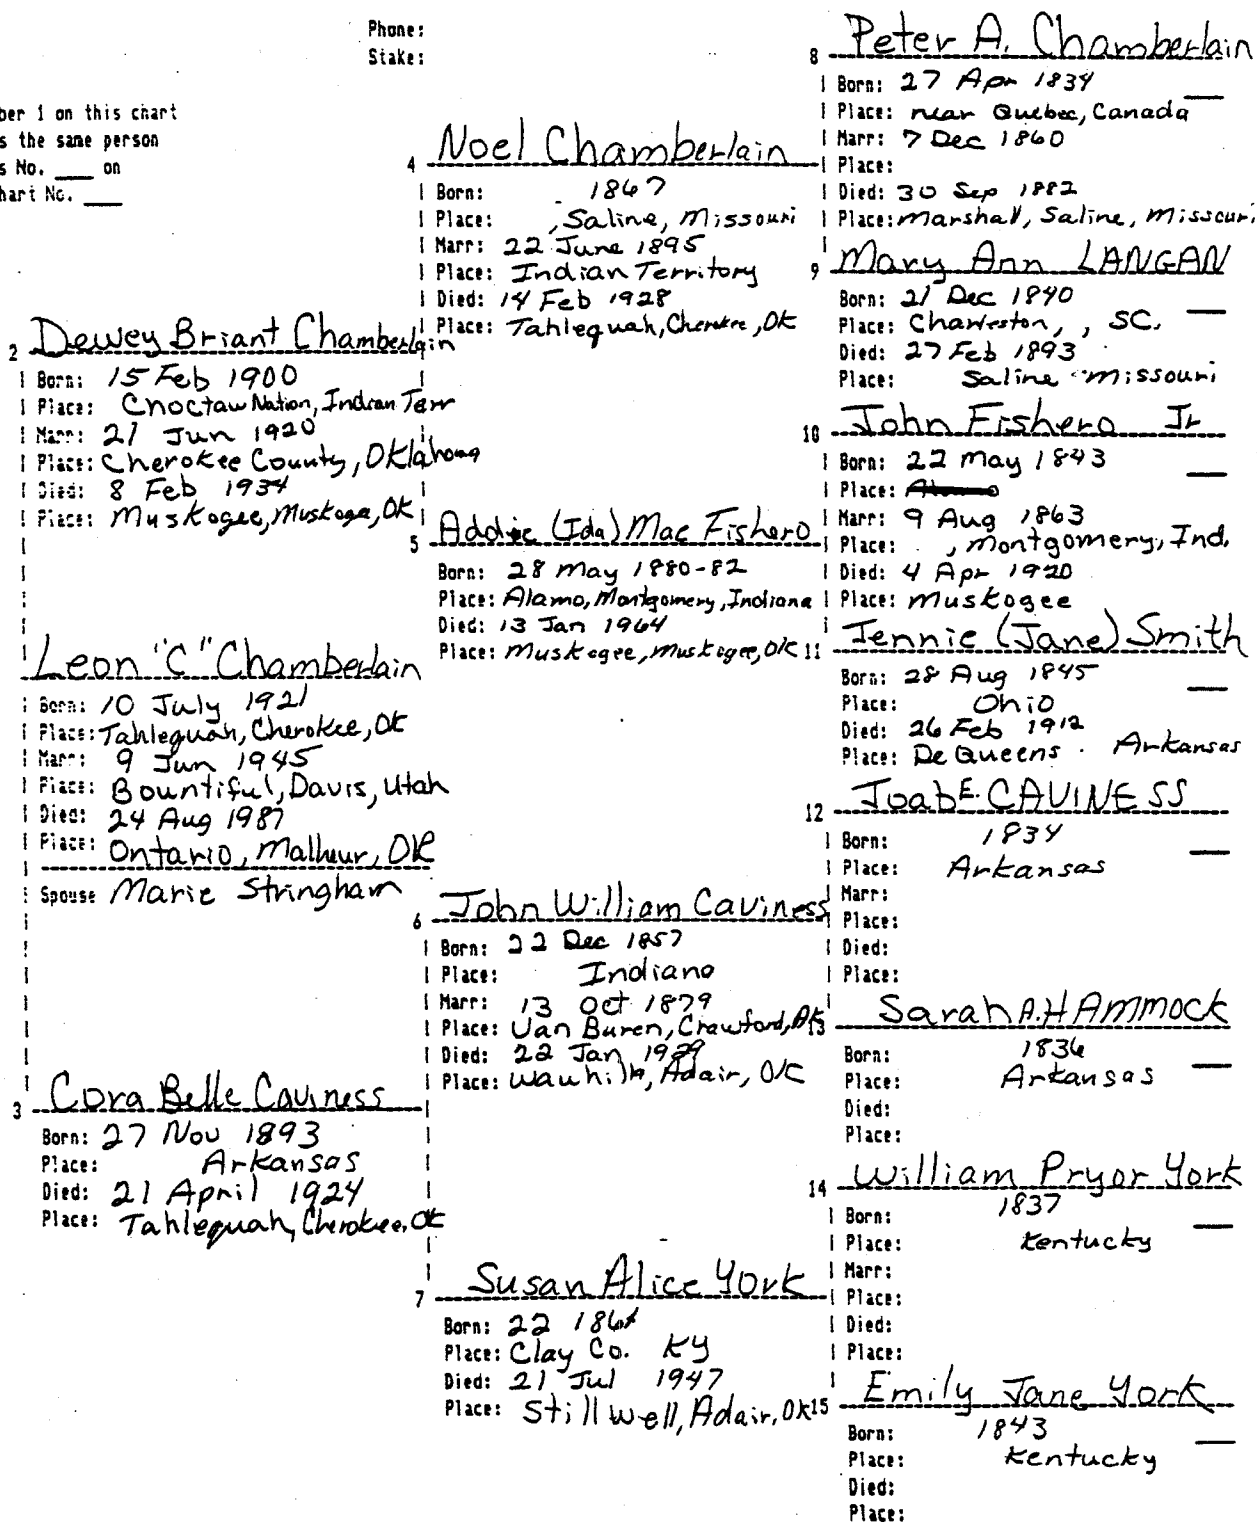 Phone:
Stake:
ber 1 on this chart
s the same person
s No. ____ on
hart No. ____
2 Dewey Briant Chamberlain
Born: 15 Feb 1900
Place: Choctaw Nation, Indian Terr
Marr: 21 Jun 1920
Place: Cherokee County, Oklahoma
Died: 8 Feb 1934
Place: Muskogee, Muskoge, Ok
Leon "C" Chamberlain
Born: 10 July 1921
Place: Tahlequah, Cherokee, Ok
Marr: 9 Jun 1945
Place: Bountiful, Davis, Utah
Died: 24 Aug 1987
Place: Ontario, Malheur, OR
Spouse Marie Stringham
3 Cora Belle Caviness
Born: 27 Nov 1893
Place: Arkansas
Died: 21 April 1924
Place: Tahlequah, Cherokee, Ok
4 Noel Chamberlain
Born: 1867
Place: , Saline, Missouri
Marr: 22 June 1895
Place: Indian Territory
Died: 14 Feb 1928
Place: Tahlequah, Cherokee, OK
5 Addie (Ida) Mae Fishero
Born: 28 May 1880-82
Place: Alamo, Montgomery, Indiana
Died: 13 Jan 1964
Place: Muskogee, Muskogee, OK
6 John William Caviness
Born: 22 Dec 1857
Place: Indiana
Marr: 13 Oct 1879
Place: Van Buren, Crawford, AK
Died: 22 Jan
Place: Adair, OK
7 Susan Alice York
Born: 22
Place: Clay Co. KY
Died: 21 Jul 1947
Place: Stillwell, Adair, OK
8 Peter A. Chamberlain
Born: 27 Apr 1834
Place: near Quebec, Canada
Marr: 7 Dec 1860
Place:
Died: 30 Sep 1882
Place: Marshall, Saline, Missouri
9 Mary Ann LANGAN
Born: 21 Dec 1840
Place: Charleston, , SC.
Died: 27 Feb 1893
Place: Saline Missouri
10 John Fishero Jr
Born: 22 May 1843
Place:
Marr: 9 Aug 1863
Place: , Montgomery, Ind.
Died: 4 Apr 1920
Place: Muskogee
11 Jennie (Jane) Smith
Born: 28 Aug 1845
Place: Ohio
Died: 26 Feb 1912
Place: De Queens Arkansas
12 Joab E. CAVINESS
Born: 1834
Place: Arkansas
Marr:
Place:
Died:
Place:
13 Sarah A. HAMMOCK
Born: 1836
Place: Arkansas
Died:
Place:
14 William Pryor York
Born: 1837
Place: Kentucky
Marr:
Place:
Died:
Place:
15 Emily Jane York
Born: 1843
Place: Kentucky
Died:
Place: